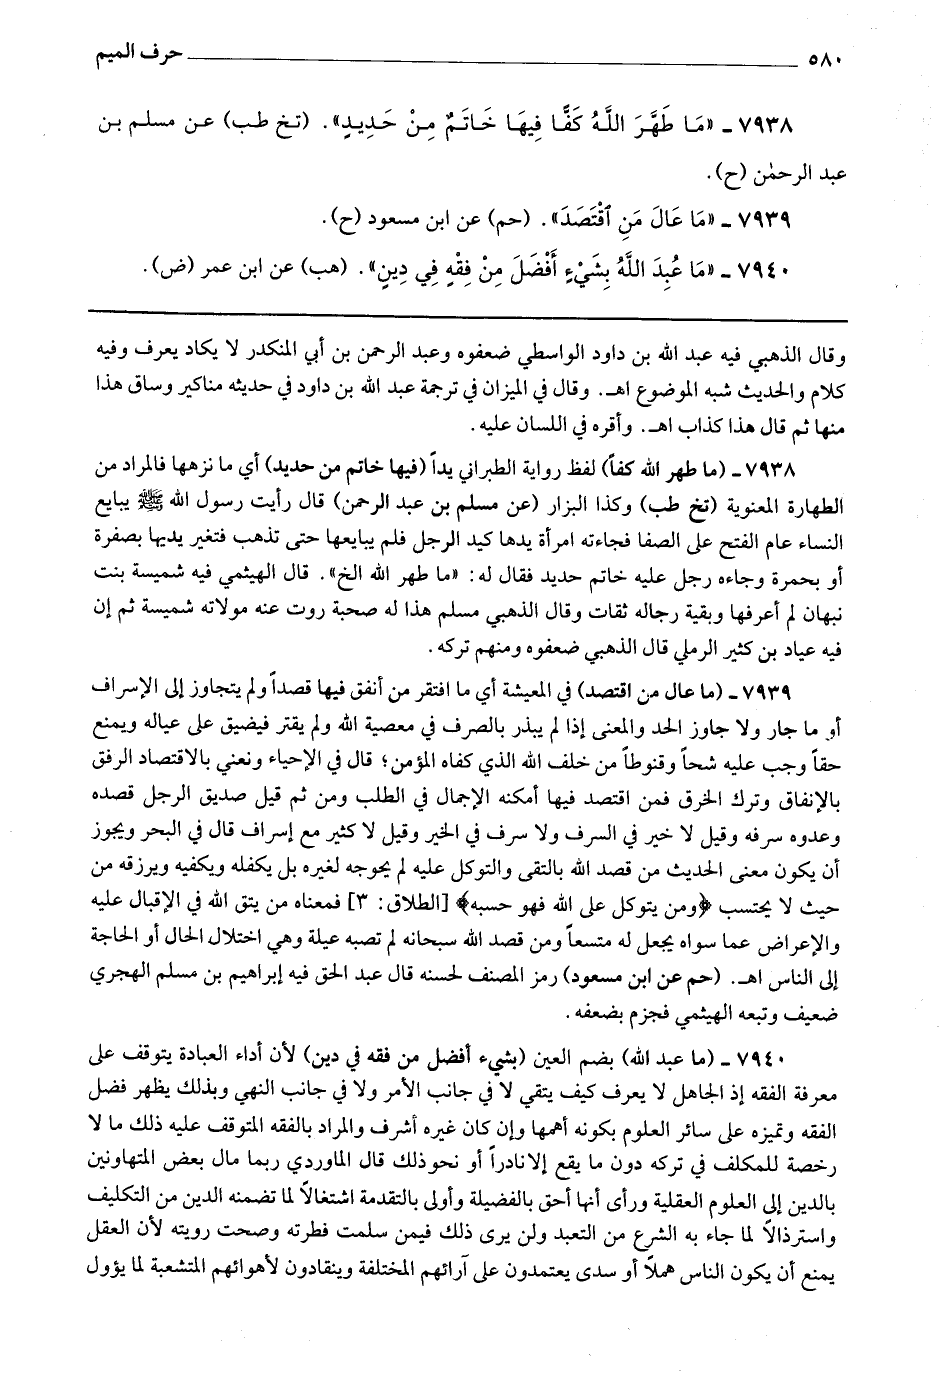 ٥٨٠ حرف الميم
٧٩٣٨ ـ «مَا طَهَّرَ اللَّهُ كَفًّا فِيهَا خَاتَمٌ مِنْ حَدِيدٍ». (تخ طب) عن مسلم بن
عبد الرحمٰن (ح).
٧٩٣٩ ـ «مَا عَالَ مَنِ ٱقْتَصَدَ». (حم) عن ابن مسعود (ح).
٧٩٤٠ ـ «مَا عُبِدَ اللَّهُ بِشَيْءٍ أَفْضَلَ مِنْ فِقْهٍ فِي دِينٍ». (هب) عن ابن عمر (ض).
وقال الذهبي فيه عبد الله بن داود الواسطي ضعفوه وعبد الرحمن بن أبي المنكدر لا يكاد يعرف وفيه
كلام والحديث شبه الموضوع اهـ. وقال في الميزان في ترجمة عبد الله بن داود في حديثه مناكير وساق هذا
منها ثم قال هذا كذاب اهـ. وأقره في اللسان عليه.
٧٩٣٨ ـ (ما طهر الله كفاً) لفظ رواية الطبراني يداً (فيها خاتم من حديد) أي ما نزهها فالمراد من
الطهارة المعنوية (تخ طب) وكذا البزار (عن مسلم بن عبد الرحمن) قال رأيت رسول الله ﷺ يبايع
النساء عام الفتح على الصفا فجاءته امرأة يدها كيد الرجل فلم يبايعها حتى تذهب فتغير يديها بصفرة
أو بحمرة وجاءه رجل عليه خاتم حديد فقال له: «ما طهر الله الخ». قال الهيثمي فيه شميسة بنت
نبهان لم أعرفها وبقية رجاله ثقات وقال الذهبي مسلم هذا له صحبة روت عنه مولاته شميسة ثم إن
فيه عياد بن كثير الرملي قال الذهبي ضعفوه ومنهم تركه.
٧٩٣٩ ـ (ما عال من اقتصد) في المعيشة أي ما افتقر من أنفق فيها قصداً ولم يتجاوز إلى الإسراف
أو ما جار ولا جاوز الحد والمعنى إذا لم يبذر بالصرف في معصية الله ولم يقتر فيضيق على عياله ويمنع
حقاً وجب عليه شحاً وقنوطاً من خلف الله الذي كفاه المؤمن؛ قال في الإحياء ونعني بالاقتصاد الرفق
بالإنفاق وترك الخرق فمن اقتصد فيها أمكنه الإجمال في الطلب ومن ثم قيل صديق الرجل قصده
وعدوه سرفه وقيل لا خير في السرف ولا سرف في الخير وقيل لا كثير مع إسراف قال في البحر ويجوز
أن يكون معنى الحديث من قصد الله بالتقى والتوكل عليه لم يحوجه لغيره بل يكفله ويكفيه ويرزقه من
حيث لا يحتسب ﴿ومن يتوكل على الله فهو حسبه﴾ [الطلاق: ٣] فمعناه من يتق الله في الإقبال عليه
والإعراض عما سواه يجعل له متسعاً ومن قصد الله سبحانه لم تصبه عيلة وهي اختلال الحال أو الحاجة
إلى الناس اهـ. (حم عن ابن مسعود) رمز المصنف لحسنه قال عبد الحق فيه إبراهيم بن مسلم الهجري
ضعيف وتبعه الهيثمي فجزم بضعفه.
٧٩٤٠ ـ (ما عبد الله) بضم العين (بشيء أفضل من فقه في دين) لأن أداء العبادة يتوقف على
معرفة الفقه إذ الجاهل لا يعرف كيف يتقي لا في جانب الأمر ولا في جانب النهي وبذلك يظهر فضل
الفقه وتميزه على سائر العلوم بكونه أهمها وإن كان غيره أشرف والمراد بالفقه المتوقف عليه ذلك ما لا
رخصة للمكلف في تركه دون ما يقع إلا نادراً أو نحو ذلك قال الماوردي ربما مال بعض المتهاونين
بالدين إلى العلوم العقلية ورأى أنها أحق بالفضيلة وأولى بالتقدمة اشتغالاً لما تضمنه الدين من التكليف
واسترذالاً لما جاء به الشرع من التعبد ولن يرى ذلك فيمن سلمت فطرته وصحت رويته لأن العقل
يمنع أن يكون الناس هملاً أو سدى يعتمدون على آرائهم المختلفة وينقادون لأهوائهم المتشعبة لما يؤول